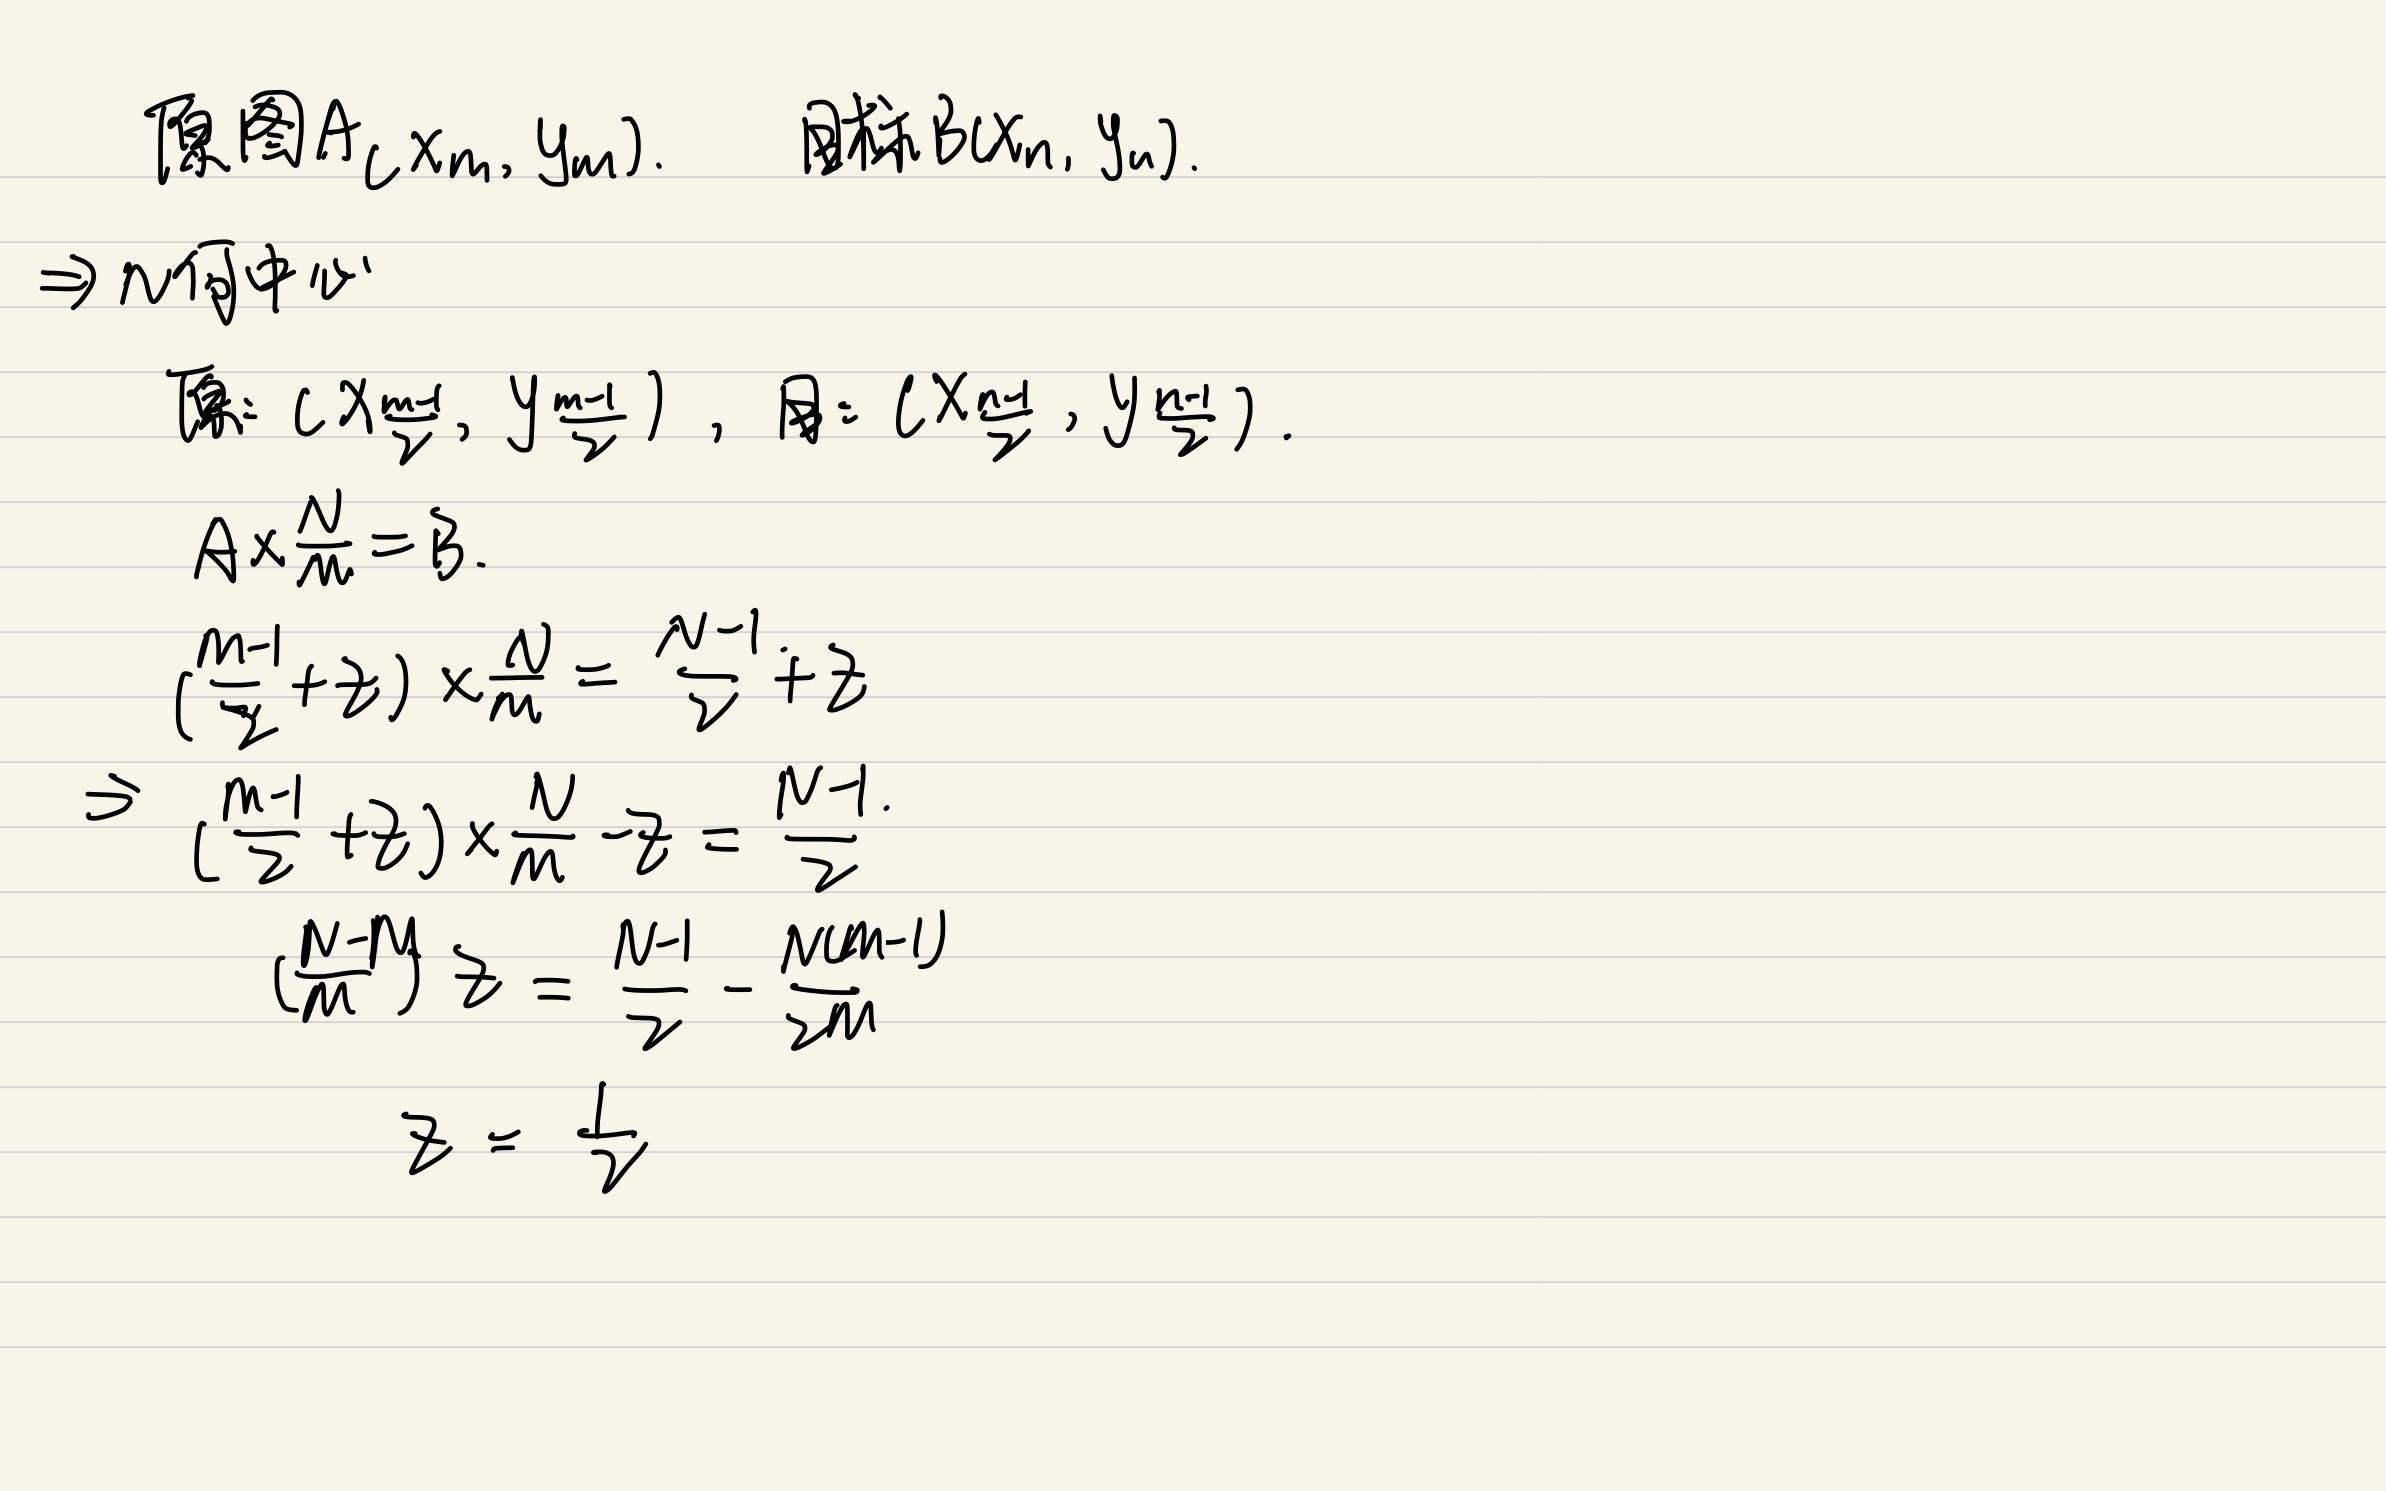 原图A(Xm, Ym). 目标B(Xn, Yn).
⇒ 几何中心
原: (X(m-1)/2, Y(m-1)/2), 目: (X(n-1)/2, Y(n-1)/2).
A×N/M=B.
((M-1)/2+Z)×N/M=(N-1)/2+Z
⇒ ((M-1)/2+Z)×N/M-Z=(N-1)/2.
((N-M)/M)Z=(N-1)/2-N(M-1)/2M
Z=1/2